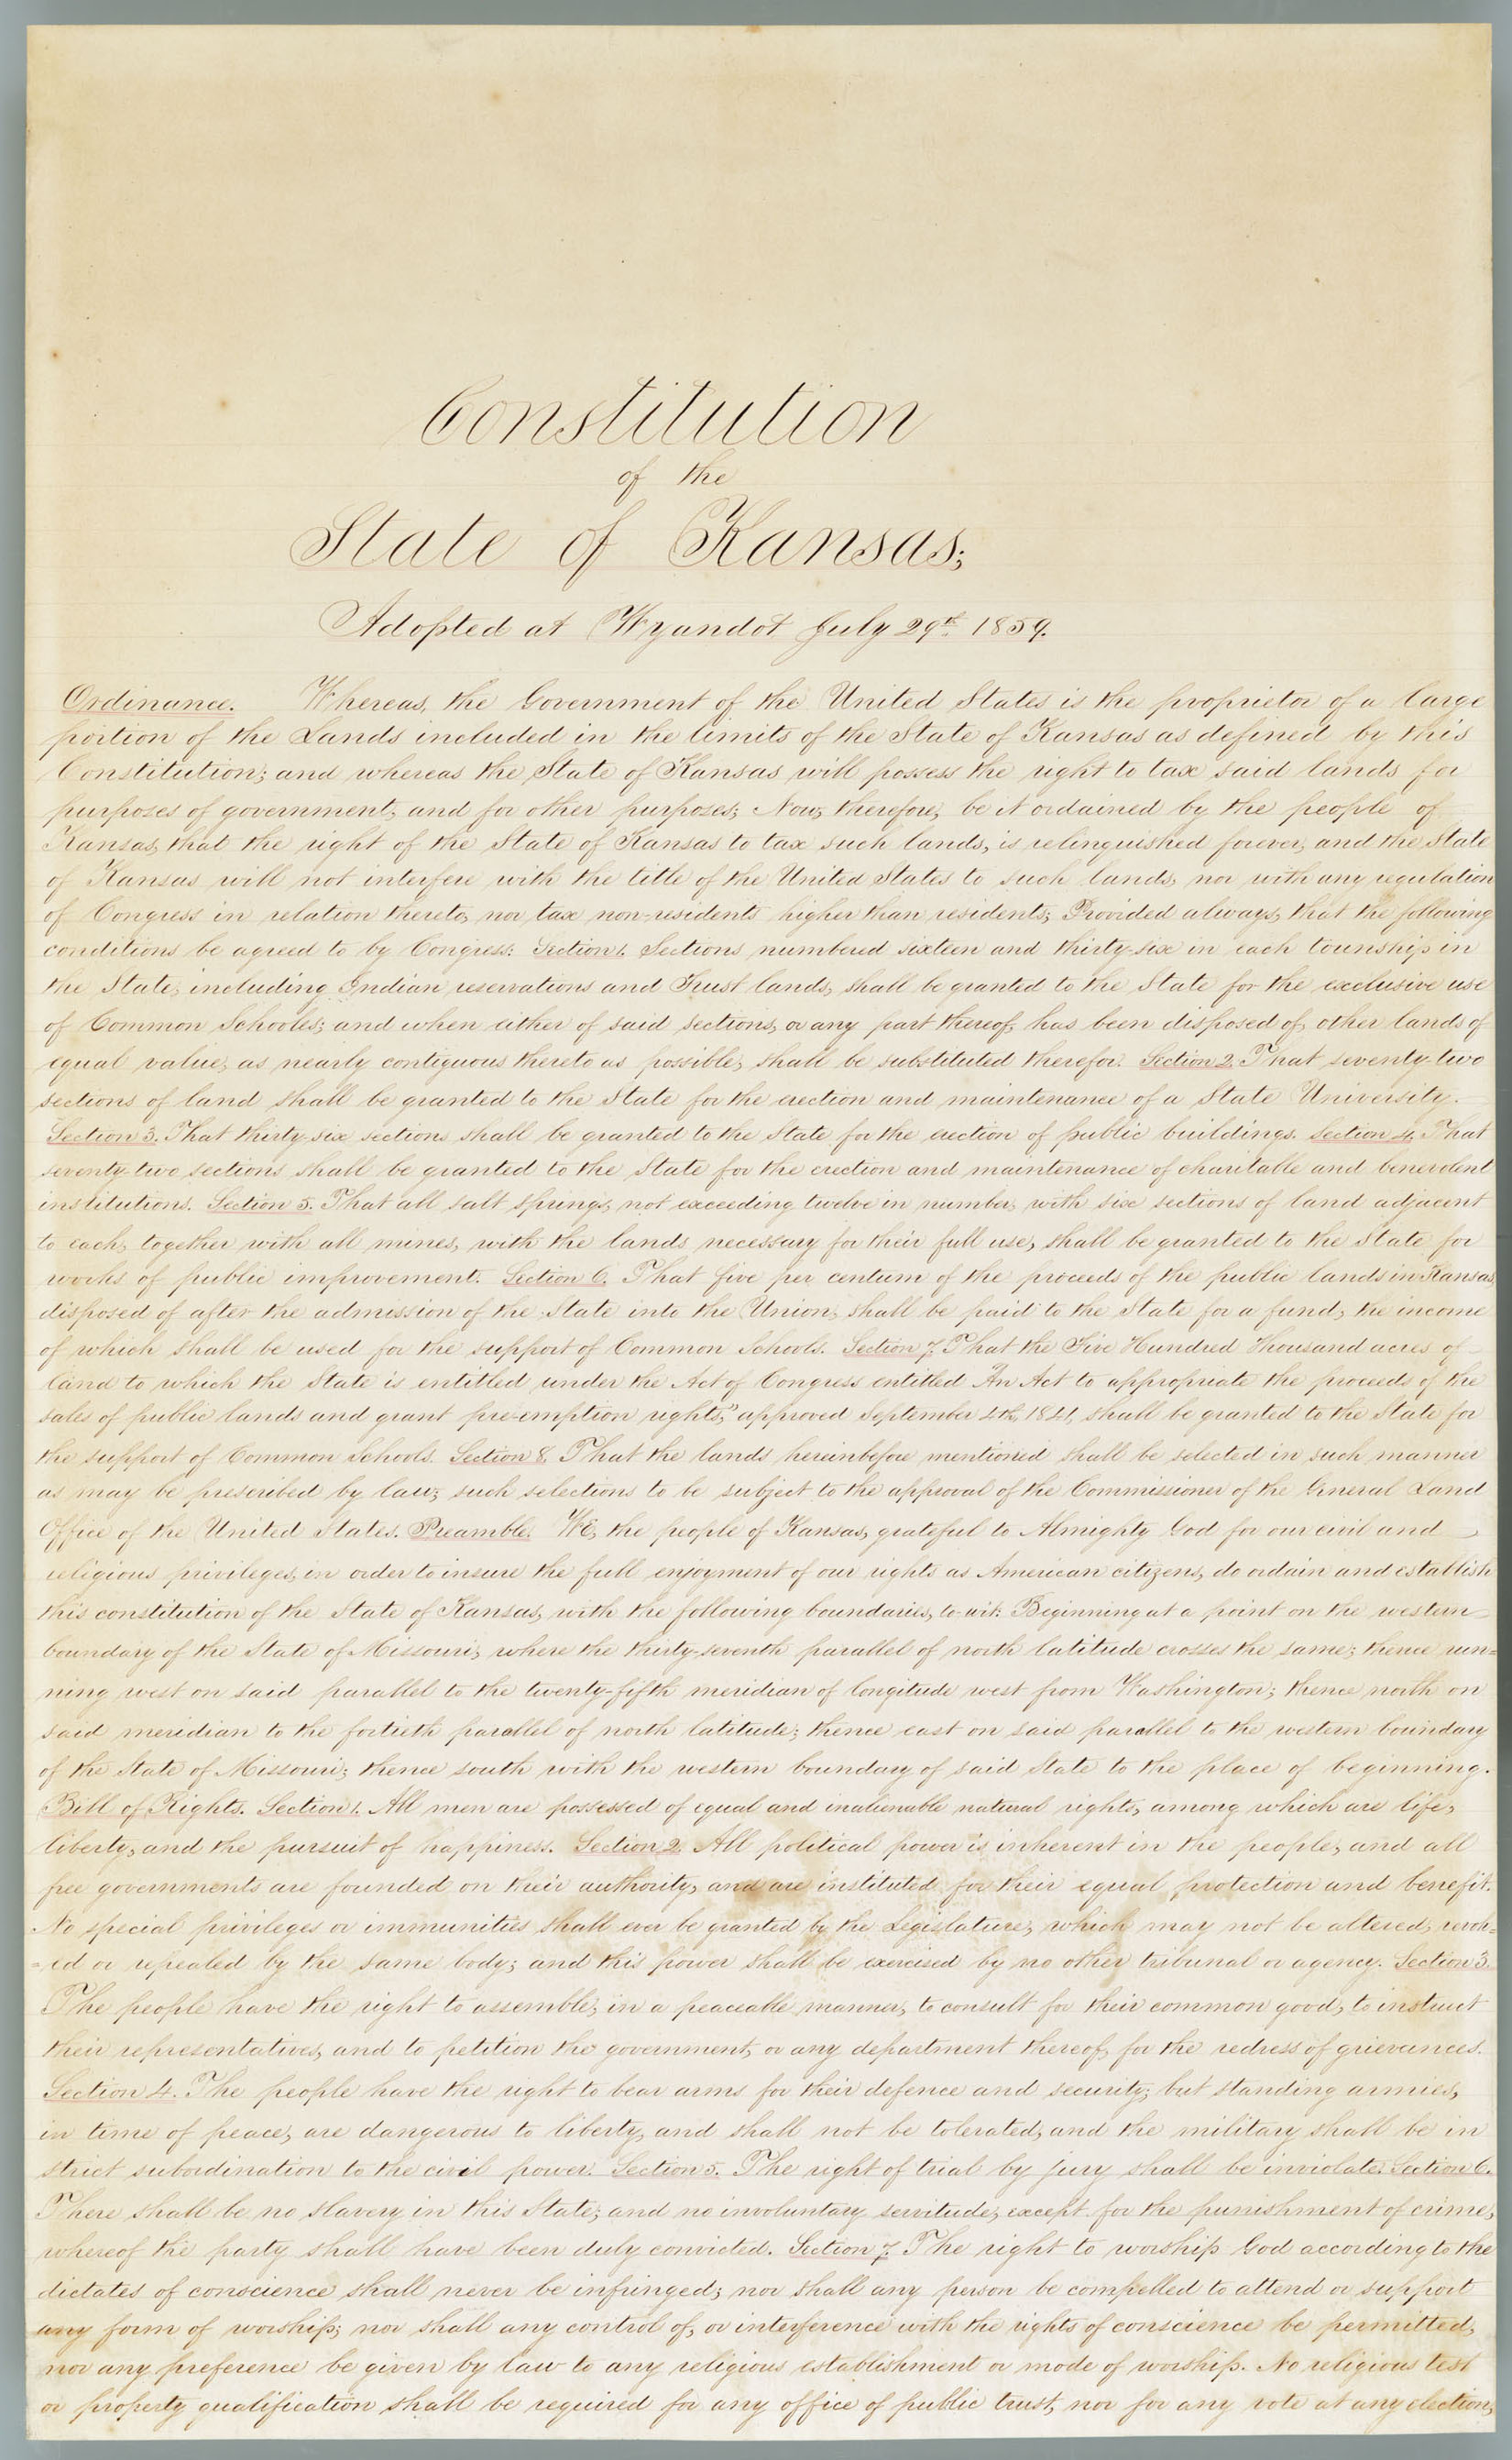 Constitution
of the
State of Kansas;
Adopted at Wyandot July 29th 1859.
Ordinance. Whereas, the Government of the United States is the proprietor of a large
portion of the Lands included in the limits of the State of Kansas as defined by this
Constitution; and whereas the State of Kansas will possess the right to tax said lands for
purposes of government, and for other purposes; Now, therefore, be it ordained by the people of
Kansas, that the right of the State of Kansas to tax such lands, is relinquished forever, and the State
of Kansas will not interfere with the title of the United States to such lands, nor with any regulation
of Congress in relation thereto, nor tax non-residents higher than residents; Provided always, that the following
conditions be agreed to by Congress: Section 1. Sections numbered sixteen and thirty-six in each township in
the State, including Indian reservations and Trust lands, shall be granted to the State for the exclusive use
of Common Schools; and when either of said sections, or any part thereof, has been disposed of, other lands of
equal value, as nearly contiguous thereto as possible, shall be substituted therefor. Section 2. That seventy-two
sections of land shall be granted to the State for the erection and maintenance of a State University.
Section 3. That thirty-six sections shall be granted to the State for the erection of public buildings. Section 4. That
seventy-two sections shall be granted to the State for the erection and maintenance of charitable and benevolent
institutions. Section 5. That all salt springs, not exceeding twelve in number, with six sections of land adjacent
to each, together with all mines, with the lands necessary for their full use, shall be granted to the State for
works of public improvement. Section 6. That five per centum of the proceeds of the public lands in Kansas,
disposed of after the admission of the State into the Union, shall be paid to the State for a fund, the income
of which shall be used for the support of Common Schools. Section 7. That the Five Hundred Thousand acres of
land to which the State is entitled under the Act of Congress entitled "An Act to appropriate the proceeds of the
sales of public lands and grant pre-emption rights," approved September 4th, 1841, shall be granted to the State for
the support of Common Schools. Section 8. That the lands hereinbefore mentioned shall be selected in such manner
as may be prescribed by law; such selections to be subject to the approval of the Commissioner of the General Land
Office of the United States. Preamble. WE, the people of Kansas, grateful to Almighty God for our civil and
religious privileges, in order to insure the full enjoyment of our rights as American citizens, do ordain and establish
this constitution of the State of Kansas, with the following boundaries, to-wit: Beginning at a point on the western
boundary of the State of Missouri, where the thirty-seventh parallel of north latitude crosses the same; thence run=
ning west on said parallel to the twenty-fifth meridian of longitude west from Washington; thence north on
said meridian to the fortieth parallel of north latitude; thence east on said parallel to the western boundary
of the State of Missouri; thence south with the western boundary of said State to the place of beginning.
Bill of Rights. Section 1. All men are possessed of equal and inalienable natural rights, among which are life,
liberty, and the pursuit of happiness. Section 2. All political power is inherent in the people, and all
free governments are founded on their authority, and are instituted for their equal protection and benefit.
No special privileges or immunities shall ever be granted by the Legislature, which may not be altered, revok=
=ed or repealed by the same body; and this power shall be exercised by no other tribunal or agency. Section 3.
The people have the right to assemble, in a peaceable manner, to consult for their common good, to instruct
their representatives, and to petition the government, or any department thereof, for the redress of grievances.
Section 4. The people have the right to bear arms for their defence and security; but standing armies,
in time of peace, are dangerous to liberty, and shall not be tolerated, and the military shall be in
strict subordination to the civil power. Section 5. The right of trial by jury shall be inviolate. Section 6.
There shall be no slavery in this State; and no involuntary servitude, except for the punishment of crime,
whereof the party shall have been duly convicted. Section 7. The right to worship God according to the
dictates of conscience shall never be infringed; nor shall any person be compelled to attend or support
any form of worship; nor shall any control of, or interference with the rights of conscience be permitted,
nor any preference be given by law to any religious establishment or mode of worship. No religious test
or property qualification shall be required for any office of public trust, nor for any vote at any election,